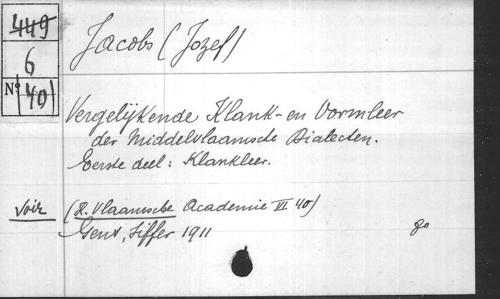 449
6
No 40
Jacobs (Jozef)
Vergelijkende Klank- en Vormleer
der Middelvlaamsche Dialecten.
Eerste deel: Klankleer.
Voir (K. Vlaamsche Academie VI 40)
Gent, Siffer 1911
8o